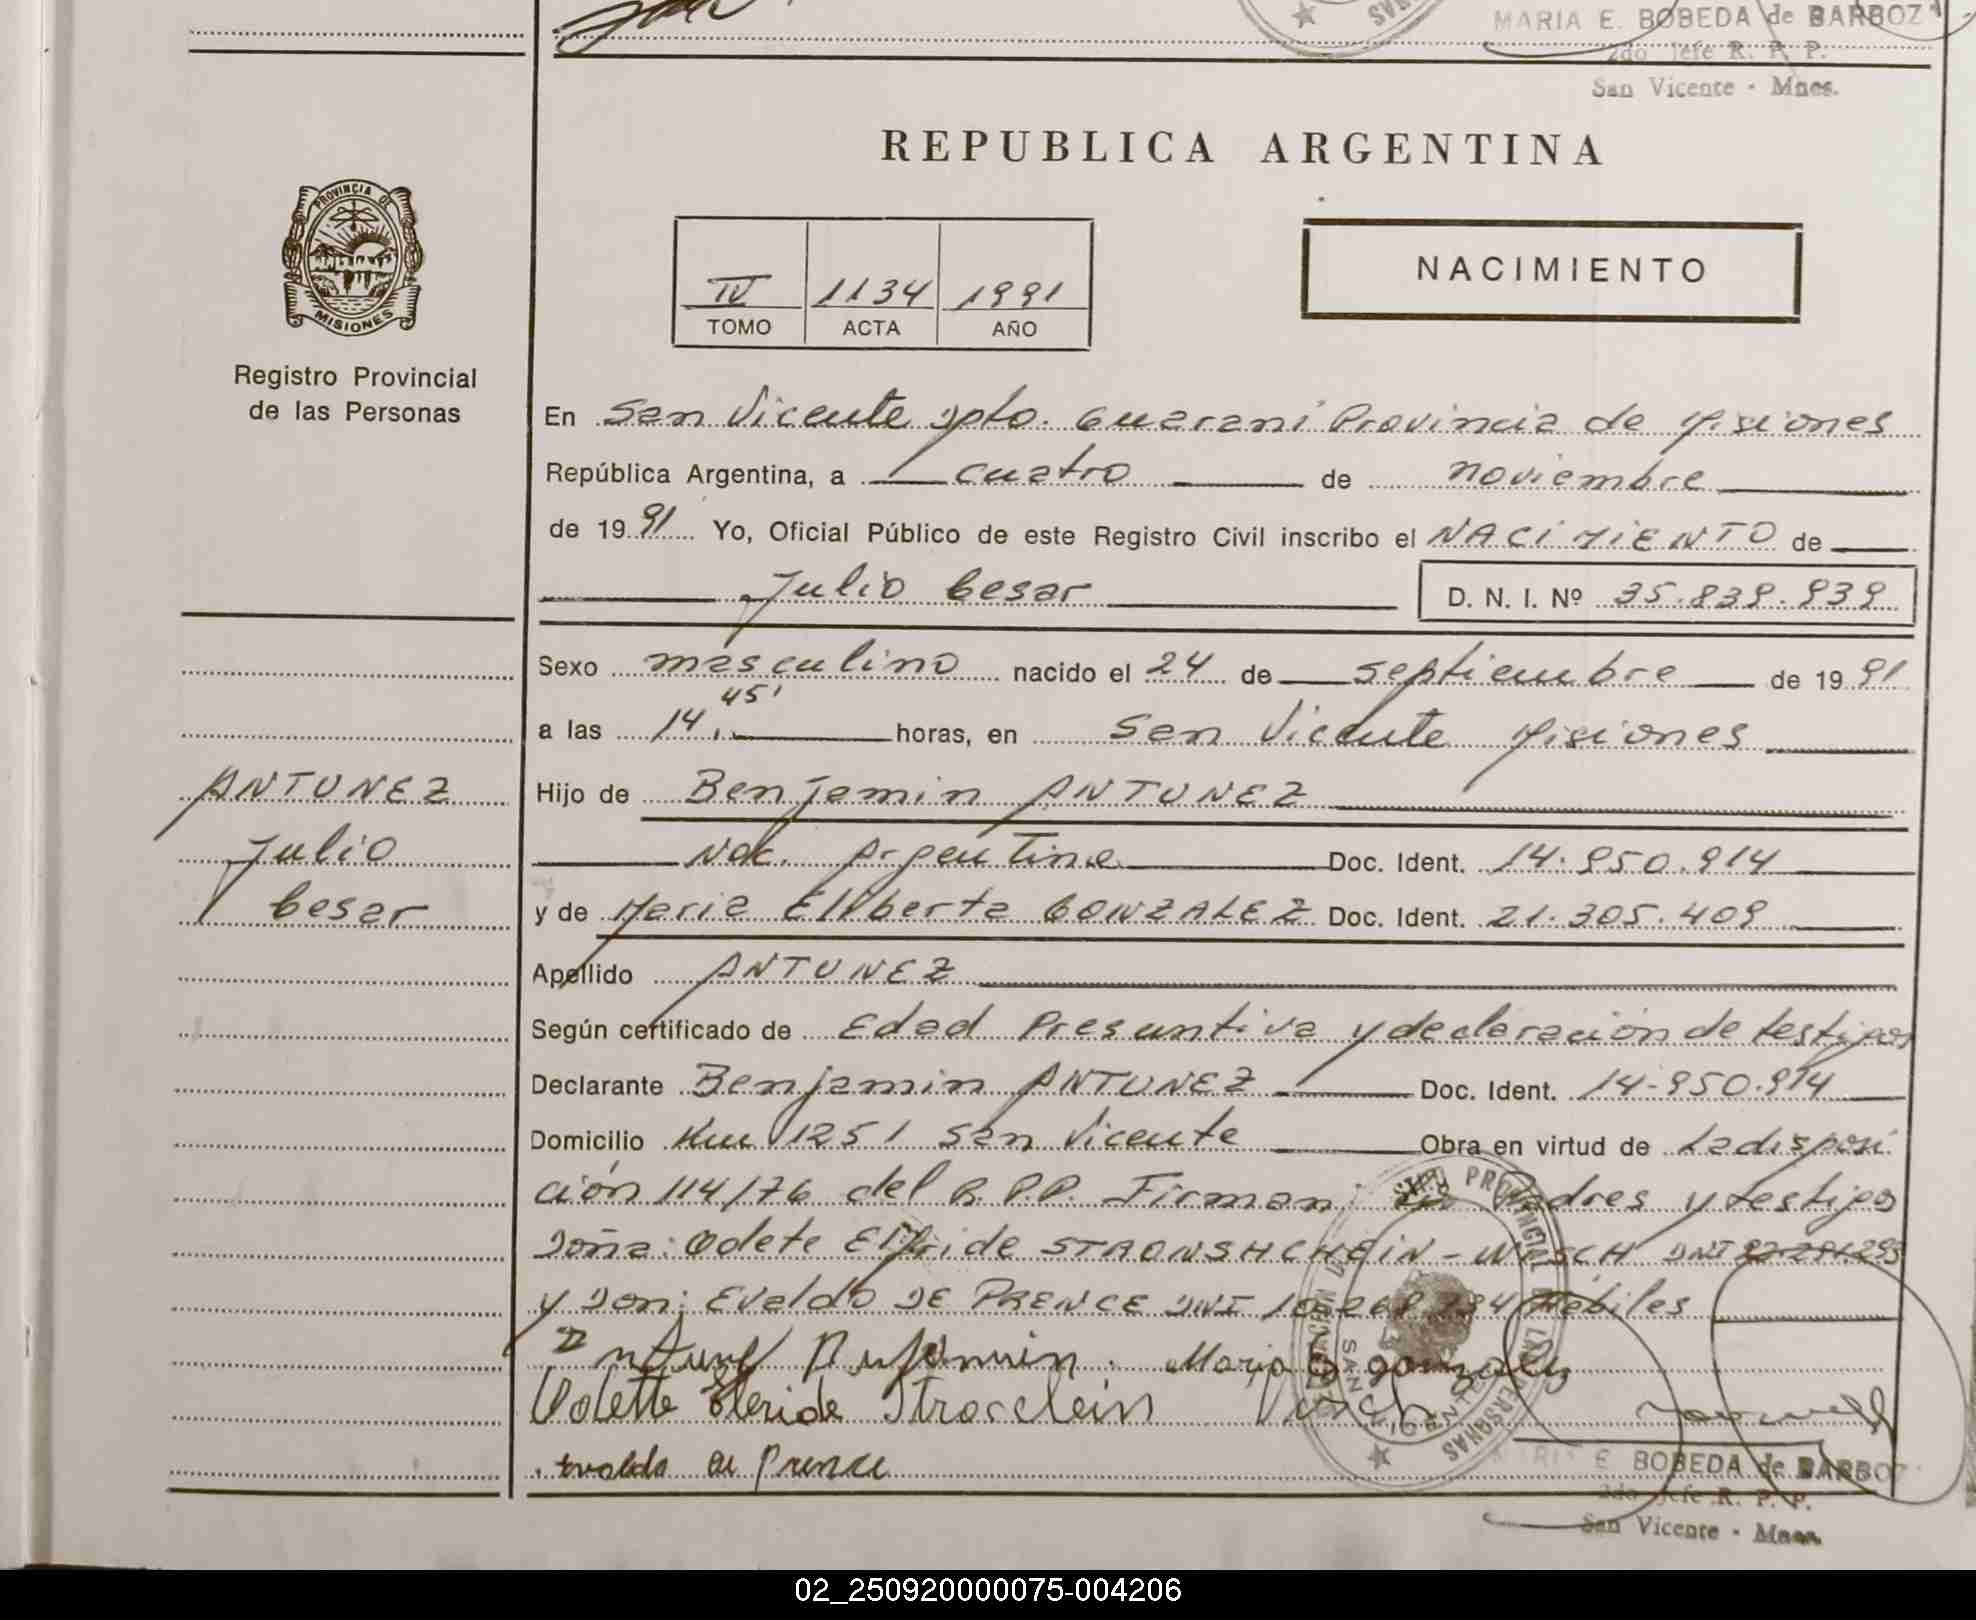 MARIA E. BOBEDA de BARBOZA
2do Jefe R. P. P.
San Vicente - Mnes.
REPUBLICA ARGENTINA
PROVINCIA DE
MISIONES
Registro Provincial
de las Personas
IV 1134 1991
TOMO ACTA AÑO
NACIMIENTO
En San Vicente Dpto. Guaraní Provincia de Misiones
República Argentina, a cuatro de noviembre
de 1991 Yo, Oficial Público de este Registro Civil inscribo el NACIMIENTO de
Julio Cesar D. N. I. Nº 35.839.939
Sexo masculino nacido el 24 de septiembre de 1991
a las 14,45' horas, en San Vicente Misiones
ANTUNEZ
Julio
Cesar
Hijo de Benjamin ANTUNEZ
Nac. Argentina Doc. Ident. 14.950.914
y de Maria Eliberta GONZALEZ Doc. Ident. 21.305.409
Apellido ANTUNEZ
Según certificado de Edad Presuntiva y declaración de testigos
Declarante Benjamin ANTUNEZ Doc. Ident. 14.950.914
Domicilio Km 1251 San Vicente Obra en virtud de La disposi
ción 114/76 del R.P.P. Firman los Padres y testigos
Doña: Odete Elfride WASCH DNI
y Don: Evaldo DE PRENCE DNI Hébiles
Maria E gonzalez
Odette
Evaldo de Prence
MARIA E BOBEDA de BARBOZ
2do Jefe R. P. P.
San Vicente - Mnes.
02_250920000075-004206